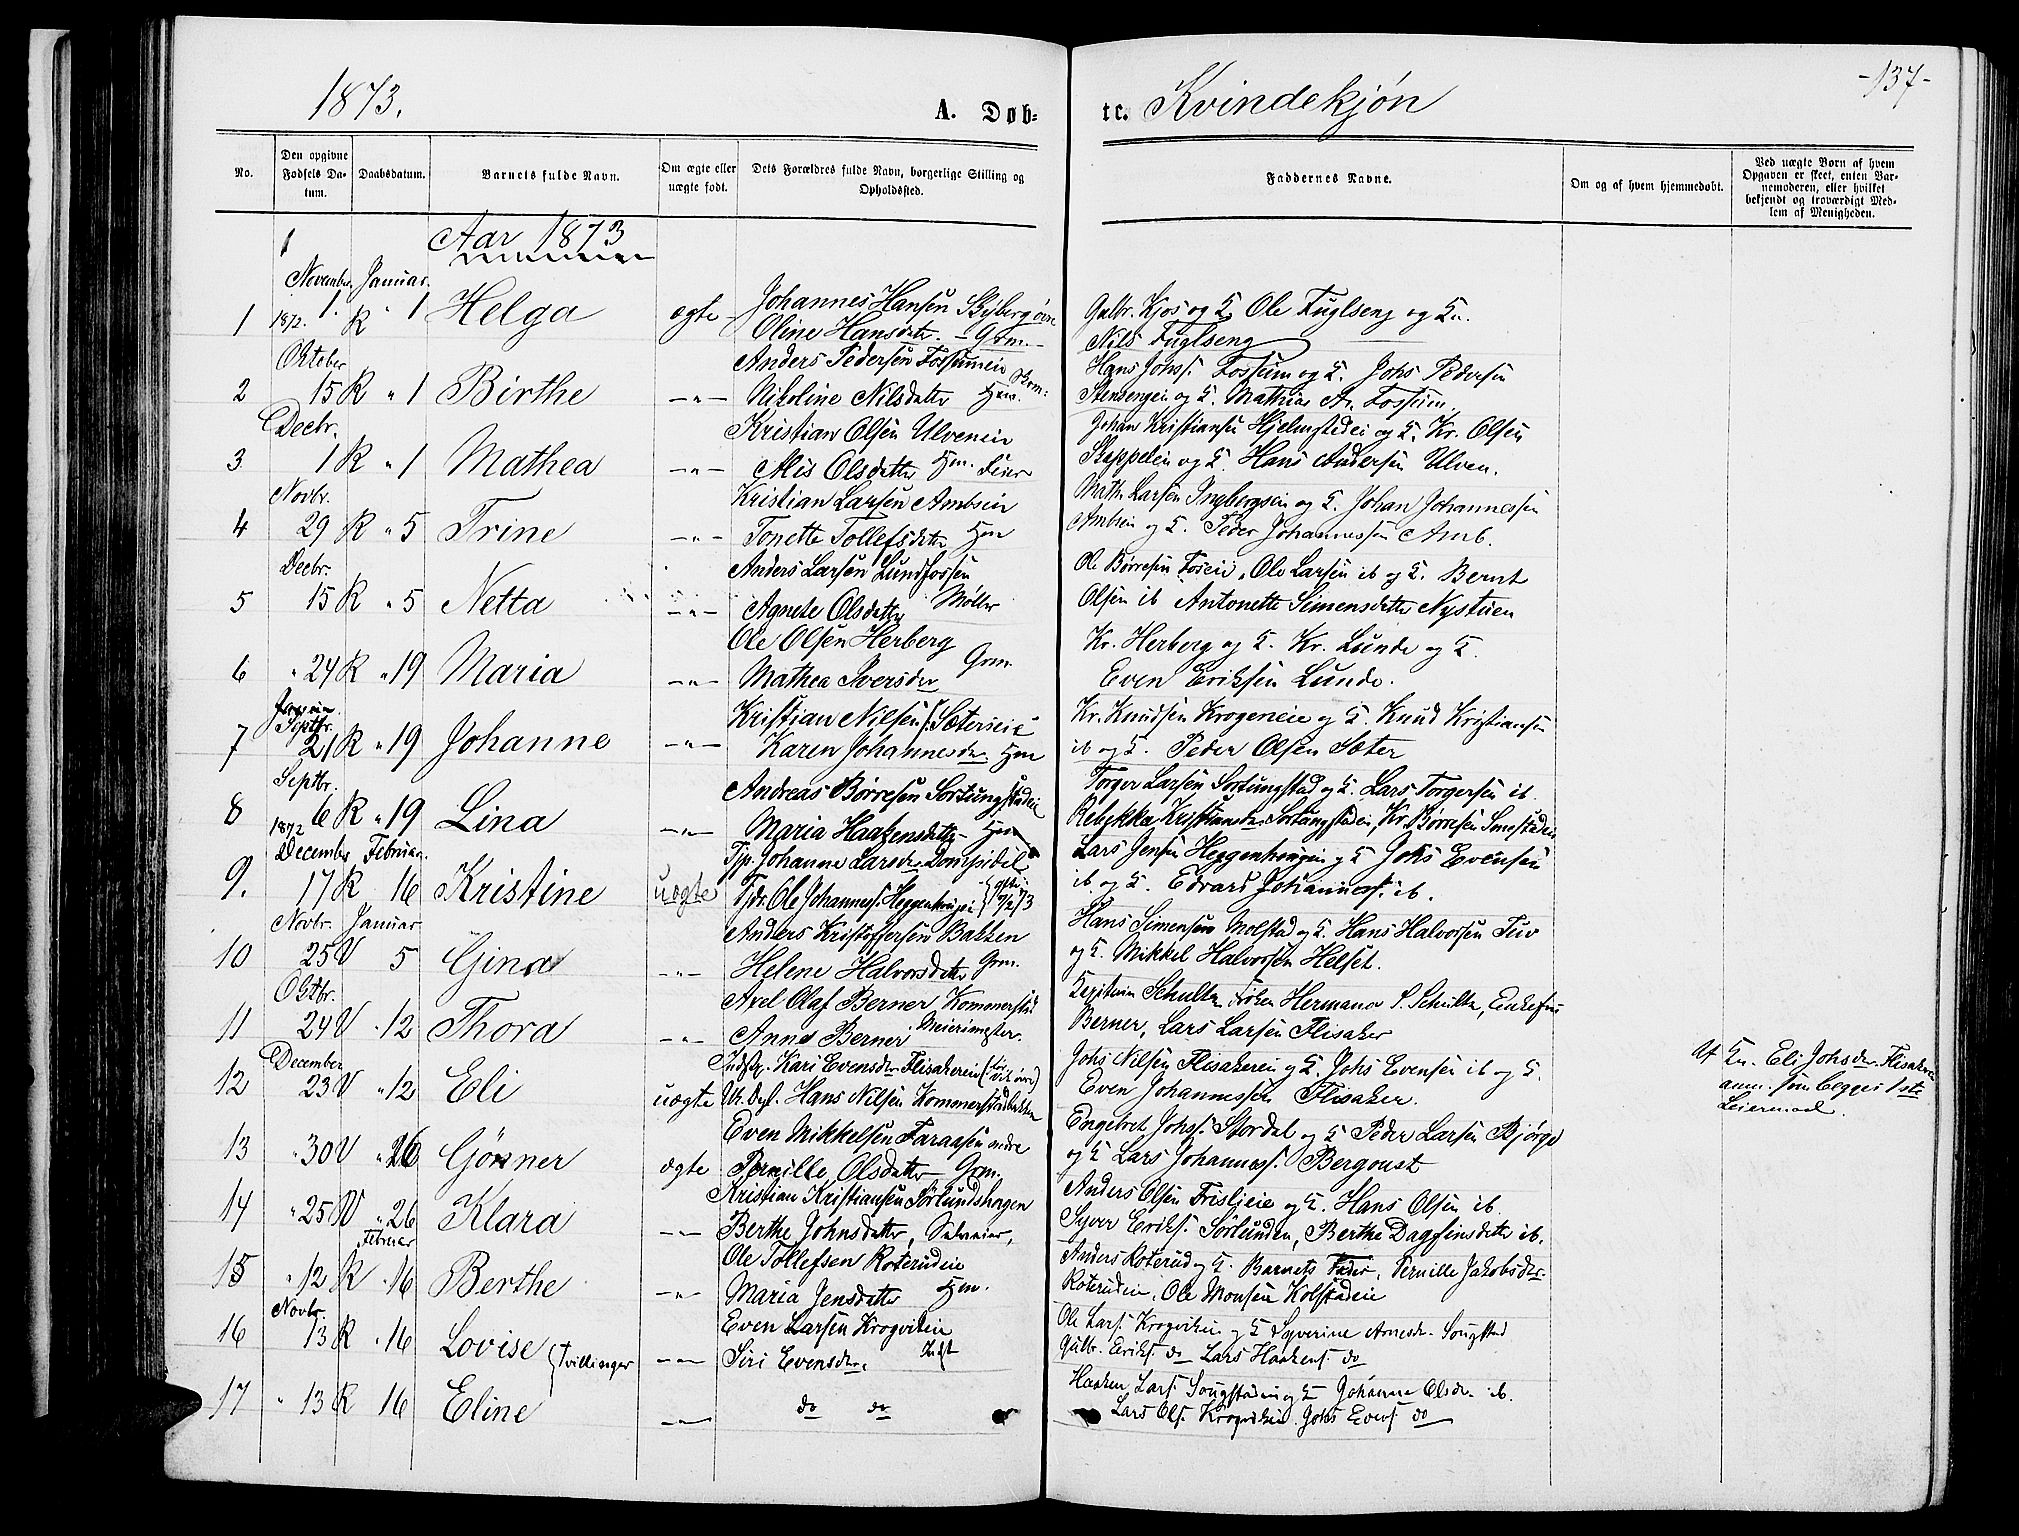 1873. A. Døb- te. Kvindekjøn -137-
No.
Den opgivne Fødsels Da-tum.
Daabsdatum.
Barnets fulde Navn.
Om ægte eller uægte født.
Dets Forældres fulde Navn, borgerlige Stilling og Opholdssted.
Faddernes Navne.
Om og af hvem hjemmedøbt.
Ved uægte Børn af hvem Opgaven er skeet, enten Bar-nemoderen, eller hvilket bekjendt og troværdigt Med-lem af Menigheden.
Aar 1873
November Januar
1 1872. 1. R " 1 Helga ægte Johannes Hansen
Oline Hansdatr. - Grm. -
Gulbr. Kjos og K. Ole Fuglseng og Kn.
Nils Fuglseng
Oktober
2 15 R " 1 Birthe -"- Anders Pedersen
Nikoline Nilsdatter Hm.
Hans Johs. Fossum og K. Johs Pedersen
og K. Mathias A. Fossum.
Decbr.
3 1 R " 1 Mathea -"- Kristian Olsen Ulveneie
Alis Olsdatter Hm.
Johan Kristiansen og K. Kr. Olsen
og K. Hans Andersen Ulven.
Novbr.
4 29 R " 5 Trine -"- Kristian Larsen Ambseie
Tonette Tollefsdatter Hm
Math. Larsen og K. Johan Johannessen
Ambseie og K. Peder Johannessen Amb.
Decbr.
5 15 R " 5 Netta -"- Anders Larsen Lundfossen
Agnete Olsdatter Møller
Ole Børresen Foseie, Ole Larsen ib og K. Bernt
Olsen ib Antonette Simensdatter Nystuen
6 " 24 R " 19 Maria -"- Ole Olsen Herberg
Mathea Iversdr Grm.
Kr. Herberg og K. Kr. Lunde og K.
Even Eriksen Lunde.
Septbr.
7 21 R " 19 Johanne -"- Kristian Nilsen Sætereie
Karen Johannesdr Hm
Kr. Knudsen Krogeneie og K. Knud Kristiansen
ib og K. Peder Olsen Sæter
Septbr.
8 1872 6 R " 19 Lina -"- Andreas Børresen Sortungstadeie
Maria Haakensdatter Hm
Torger Larsen Sortungstad og K. Lars Torgersen ib.
Rebekka Kristiansdr Sortungstadeie, Kr. Børresen
December Februar.
9. 17 R 16 Kristine uægte Johanne Larsdr
Ole Johanness. Heggenhougen
Lars Jensen Heggenhougen og K Johs Evensen
ib og K. Edvard Johanness. ib.
Novbr. Januar
10 25 V 5 Gina -"- Anders Kristoffersen Bakken
Helene Halvorsdatter Grm.
Hans Simensen Molstad og K. Hans Halvorsen
og K. Mikkel Halvorsen Helset.
Oktbr.
11 24 V " 12 Thora -"- Axel Olaf Berner Kommerstad
Anna Berner Meierimester.
Schultz, Frøken Hermana S. Schultz, Enkefru
Berner, Lars Larsen Flisaker
December
12 23 V " 12 Eli uægte Kari Evensdr Flisakereie
Hans Nilsen Kommerstadbakken
Johs Nilsen Flisakereie og K. Johs Evensen ib og K.
Even Johannessen Flisaker.
Af Kn. Eli Johsdr. Flisakereie
anm. som begges 1ste
Leiermaal.
13 " 30 V " 26 Gønner ægte Even Mikkelsen Faraasen nedre
Pernille Olsdatter Grm.
Engebret Johs. Stordal og K Peder Larsen Bjørge
og K Lars Johanness. Bergoust
14 " 25 V " 26 Klara -"- Kristian Kristiansen Sørlundshagen
Berthe Johnsdatter, Selveier,
Anders Olsen og K. Hans Olsen ib.
Syver Eriks. Sørlunden, Berthe Dagfinsdatter ib.
Februar
15 " 12 R " 16 Berthe -"- Ole Tollefsen Roterudeie
Maria Jensdatter Hm.
Anders Roterud og K. Barnets Fader, Pernille Jakobsdr.
Roterudeie, Ole Monsen Kolstadeie
Novbr.
16 13 R " 16 Lovise -"- Even Larsen Krogvikeie
Siri Evensdr. Indst
Tvillinger
Ole Lars. Krogvikeie og K Syverine Arnesdr. Sougstad
Gulbr. Eriks. do Lars Haakens. do
17 " 13 R 16 Eline -"- do do
Haaken Lars. Sougstadeie og K Johanne Olsdr. ib.
Lars Ols. Krogvikeie. Johs Evens. do